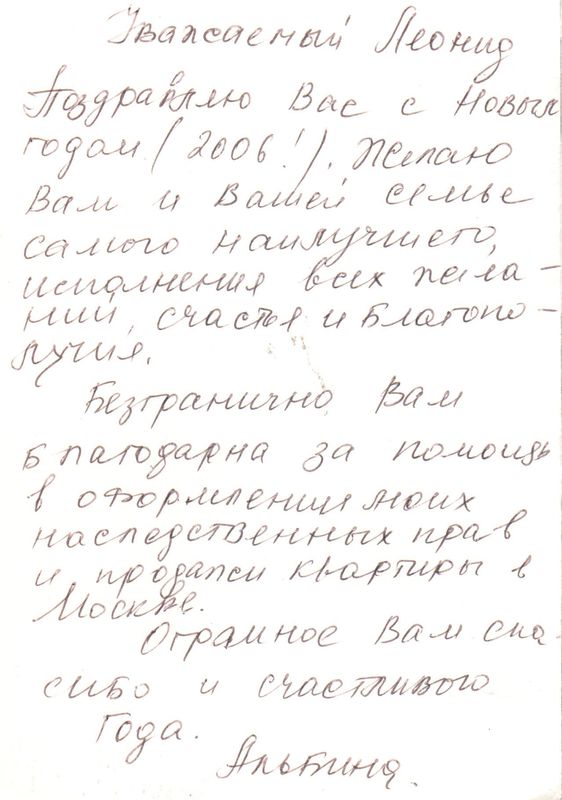 Уважаемый Леонид
Поздравляю Вас с Новым
годом (2006!). Желаю
Вам и Вашей семье
самого наилучшего,
исполнения всех жела-
ний, счастья и благопо-
лучия.
Безгранично Вам
благодарна за помощь
в оформлении моих
наследственных прав
и продажи квартиры в
Москве.
Огромное Вам спа-
сибо и счастливого
Года.
Альбина.